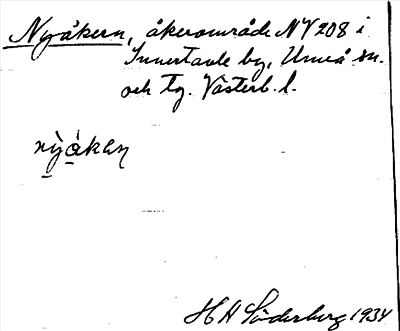 Nyåkern, åkerområde NV 208 i
Innertavle by, Umeå sn.
och tg. Västerb. l.
nỳákeṇ
H A Söderberg 1934